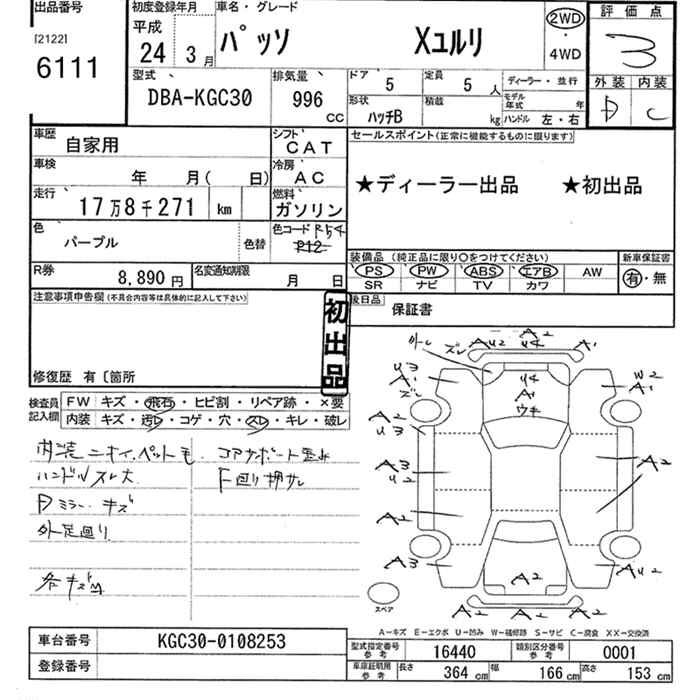 出品番号
[2122]
6111
初度登録年月
平成
24 3月
車名・グレード
パッソ Xユルリ
2WD
・
4WD
評価点
3
外装 内装
D C
型式
DBA-KGC30
排気量
996 CC
ドア
5
定員
5 人
形状
ハッチB
積載
kg
ディーラー・並行
モデル年式 年
ハンドル 左・右
車歴
自家用
シフト
CAT
車検
年 月( 日)
冷房
AC
走行
17万8千271 km
燃料
ガソリン
色
パープル
色替
色コード R54
R12
R券
8,890 円
名変通知期限
月 日
セールスポイント(正常に機能するものに限ります)
★ディーラー出品 ★初出品
装備品 (純正品に限り○をつけてください)
PS PW ABS エアB AW
SR ナビ TV カワ
新車保証書
有・無
後日品
保証書
注意事項申告欄(不具合内容等は具体的に記入して下さい)
初出品
修復歴 有〔箇所
検査員記入欄
FW キズ・飛石・ヒビ割・リペア跡・×要
内装 キズ・汚レ・コゲ・穴・スレ・キレ・破レ
内装ニオイ、ペット毛
ハンドルスレ大
Dミラーキズ
外足廻り
各キズ凹
コアサポート歪み
下廻り押サレ
外し
ズレ
A2
AU2 U4
A1
U3
A1
ズレ
U4
A1
ウキ
W2
A1
A2
U3
A3
U2
A2
A2
A3
A2
AU2
A2 A2 A2
スペア
A-キズ E-エクボ U-凹み W-補修跡 S-サビ C-腐食 XX-交換済
車台番号
KGC30-0108253
登録番号
型式指定番号 参考
16440
類別区分番号 参考
0001
車庫証明用 参考
長さ 364 cm
幅 166 cm
高さ 153 cm